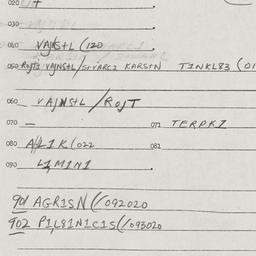 020
030
040 VAJNS+L (120
050 ROJT1 VAJNS+L/S+VARC1 KARS+N TINKL83 (01
060 - VAJNS+L/ROJT
070 - 071 TERPK1
080 A/L1K(022 081
090 L1M1N1
901 AGR1SN(/092020
902 P1L81N1C1S(/093020